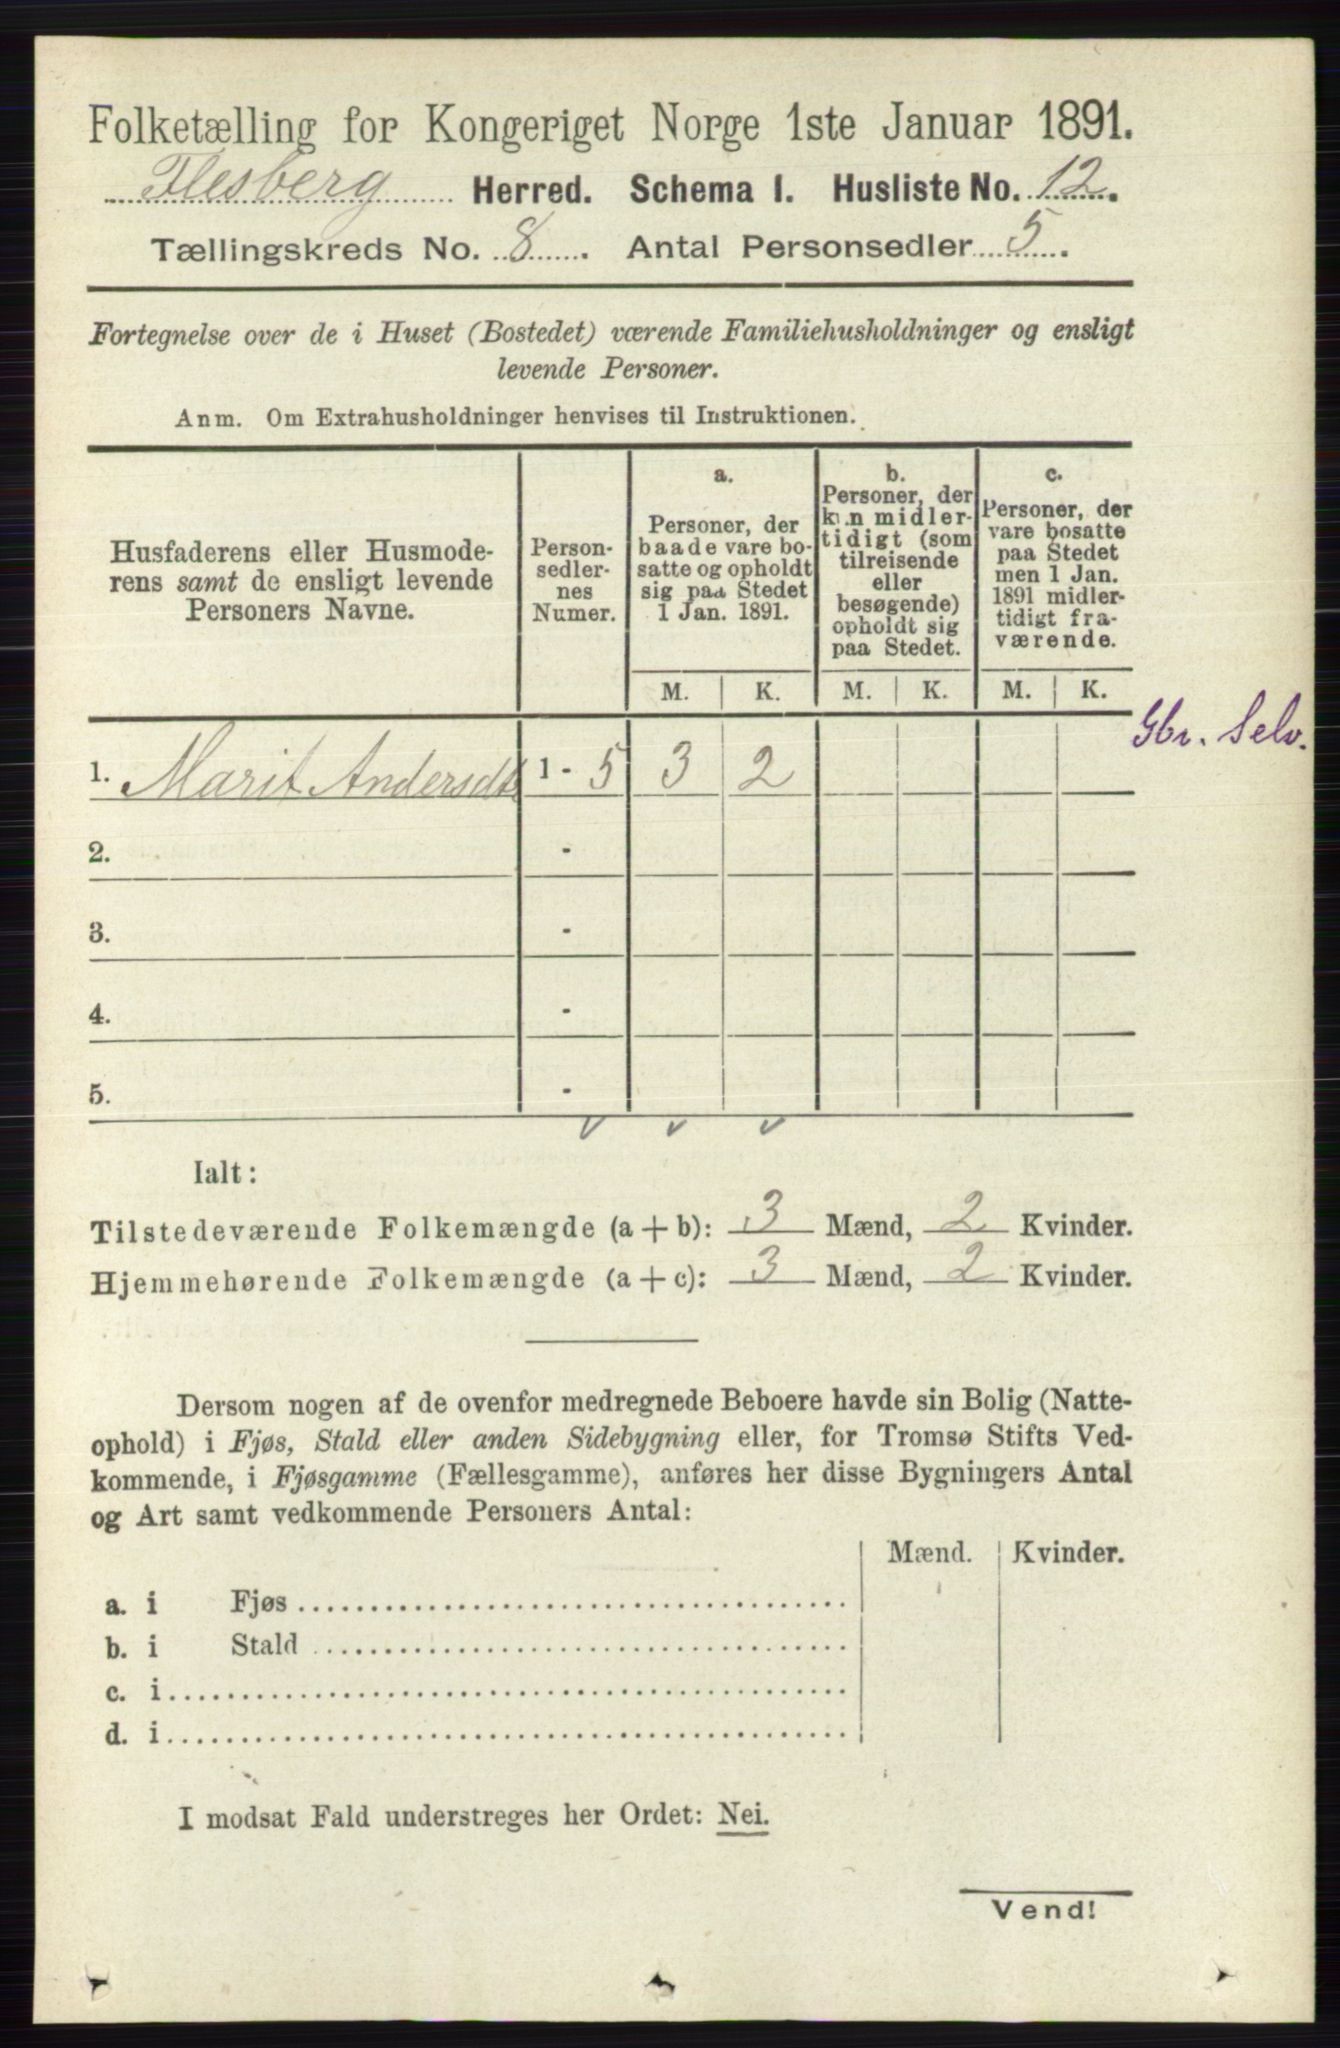 Folketælling for Kongeriget Norge 1ste Januar 1891.
Flesberg Herred. Schema I. Husliste No. 12.
Tællingskreds No. 8. Antal Personsedler 5.
Fortegnelse over de i Huset (Bostedet) værende Familiehusholdninger og ensligt
levende Personer.
Anm. Om Extrahusholdninger henvises til Instruktionen.
Husfaderens eller Husmode-
rens samt de ensligt levende
Personers Navne.
Person-
sedler-
nes
Numer.
a.
Personer, der
baade vare bo-
satte og opholdt
sig paa Stedet
1 Jan. 1891.
b.
Personer, der
kun midler-
tidigt (som
tilreisende
eller
besøgende)
opholdt sig
paa Stedet.
c.
Personer, der
vare bosatte
paa Stedet
men 1 Jan.
1891 midler-
tidigt fra-
værende.
M. K. M. K. M. K.
Gbr. Selv.
1. Marit Andersdt. 1 - 5 3 2
2. -
3. -
4. -
5. -
Ialt:
Tilstedeværende Folkemængde (a + b): 3 Mænd, 2 Kvinder.
Hjemmehørende Folkemængde (a + c): 3 Mænd, 2 Kvinder.
Dersom nogen af de ovenfor medregnede Beboere havde sin Bolig (Natte-
ophold) i Fjøs, Stald eller anden Sidebygning eller, for Tromsø Stifts Ved-
kommende, i Fjøsgamme (Fællesgamme), anføres her disse Bygningers Antal
og Art samt vedkommende Personers Antal:
Mænd. Kvinder.
a. i Fjøs
b. i Stald
c. i
d. i
I modsat Fald understreges her Ordet: Nei.
Vend!